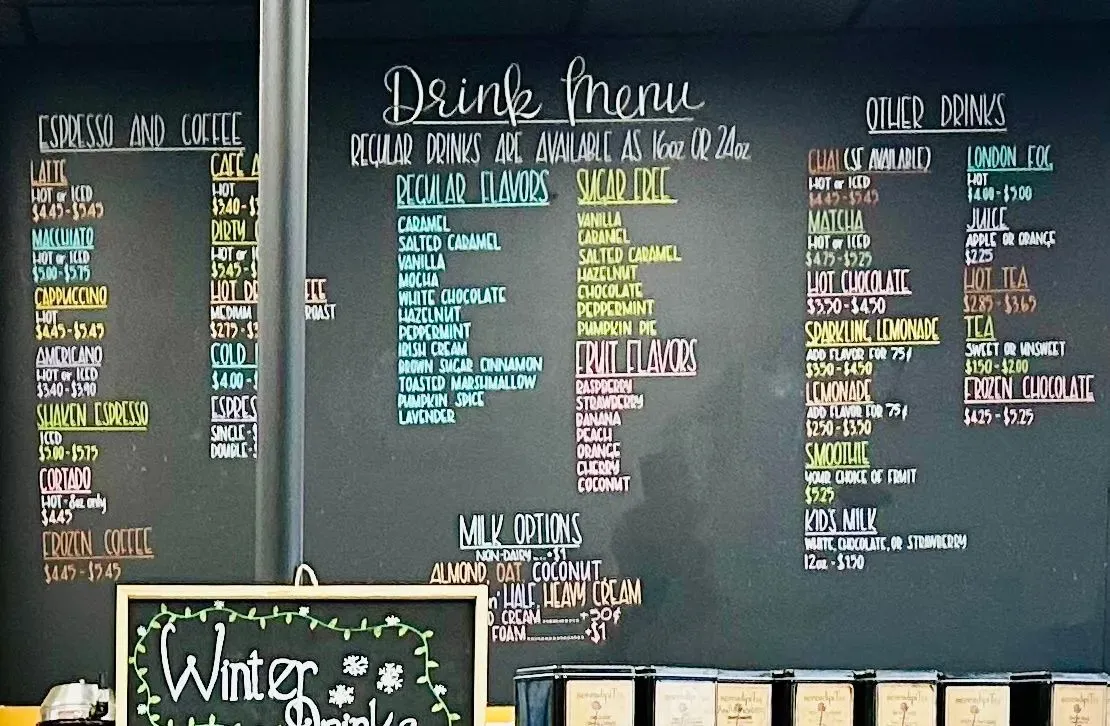 Drink Menu
REGULAR DRINKS ARE AVAILABLE AS 16oz OR 24oz
ESPRESSO AND COFFEE
LATTE
HOT or ICED
$4.45-$5.45
MACCHIATO
HOT or ICED
$5.00-$5.75
CAPPUCCINO
HOT
$4.45-$5.45
AMERICANO
HOT or ICED
$3.40-$3.90
SHAKEN ESPRESSO
ICED
$5.00-$5.75
CORTADO
HOT-8oz only
$4.45
FROZEN COFFEE
$4.45-$5.45
CAFÉ A
HOT
$3.40-$
DIRTY
HOT or
$5.45-
HOT
MEDIUM ROAST
$2.75-$3
COLD
$4.00-
ESPRES
SINGLE-$
DOUBLE-
REGULAR FLAVORS
CARAMEL
SALTED CARAMEL
VANILLA
MOCHA
WHITE CHOCOLATE
HAZELNUT
PEPPERMINT
IRISH CREAM
BROWN SUGAR CINNAMON
TOASTED MARSHMALLOW
PUMPKIN SPICE
LAVENDER
SUGAR FREE
VANILLA
CARAMEL
SALTED CARAMEL
HAZELNUT
CHOCOLATE
PEPPERMINT
PUMPKIN PIE
FRUIT FLAVORS
RASPBERRY
STRAWBERRY
BANANA
PEACH
ORANGE
CHERRY
COCONUT
MILK OPTIONS
NON-DAIRY....+$1
ALMOND, OAT, COCONUT
n' HALF, HEAVY CREAM
D CREAM............+50¢
FOAM...............+$1
OTHER DRINKS
CHAI (SF AVAILABLE)
HOT or ICED
$4.45-$5.45
MATCHA
HOT or ICED
$4.75-$5.25
HOT CHOCOLATE
$3.50-$4.50
SPARKLING LEMONADE
ADD FLAVOR FOR 75¢
$3.50-$4.50
LEMONADE
ADD FLAVOR FOR 75¢
$2.50-$3.50
SMOOTHIE
YOUR CHOICE OF FRUIT
$5.25
KID'S MILK
WHITE, CHOCOLATE, OR STRAWBERRY
12oz-$1.50
LONDON FOG
HOT
$4.00-$5.00
JUICE
APPLE OR ORANGE
$2.25
HOT TEA
$2.85-$3.65
TEA
SWEET OR UNSWEET
$1.50-$2.00
FROZEN CHOCOLATE
$4.25-$5.25
Winter
Drinks